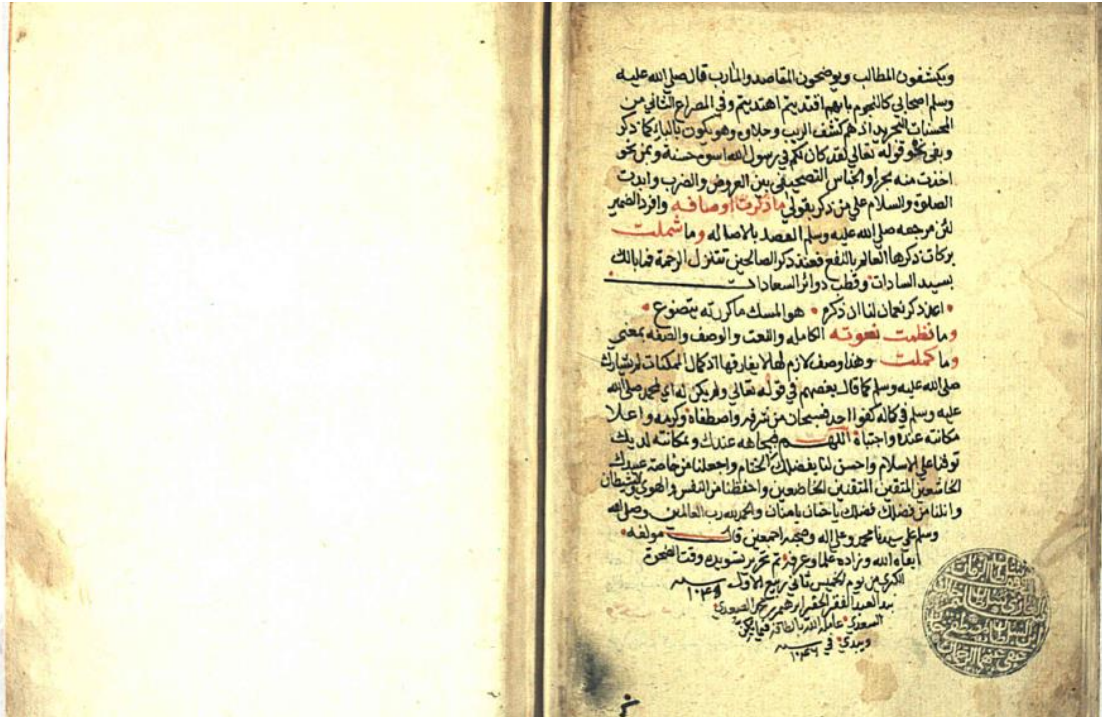 ويكشفون المطالب ويوضحون المقاصد والمارب قال صلى الله عليه
وسلم اصحابي كالنجوم بايهم اقتديتم اهتديتم وفي المصراع الثاني من
المحسنات التجريد اذ هم كشف الريب وحلاوه وهو يكون بالباء كما ذكر
وبفي نحو قوله تعالى لقد كان لكم في رسول الله اسوة حسنة وبمن نحو
اخذت منه بحرا والجناس التصحيفي بين العروض والضرب وابدت
الصلوة والسلام على من ذكر بقولي ما ذكرت اوصافه وافرد الضمير
لئن مرجعه صلى الله عليه وسلم القصد بالاصاله وما شملت
بركات ذكرها العالم بالنفع فعند ذكر الصالحين تتنزل الرحمة فما بالك
بسيد السادات وقطب دوائر السعادات
اعد ذكر نعمان لنا ان ذكره هو المسك ما كررته يتضوع
وما نظمت نعوته الكامله والنعت والوصف والصفه بمعنى
وما كملت وهذا وصف لازم لها لا يفارقها اذ كمال الممكنات لم يشارك
صلى الله عليه وسلم كما قال بعضهم في قوله تعالى ولم يكن له اي لمحمد صلى الله
عليه وسلم في كماله كفوا احد فسبحان من شرفه واصطفاه وكرمه واعلا
مكانته عنده واجتباه اللهم فبجاهه عندك وبمكانته لديك
توفنا على الاسلام واحسن لنا بفضلك الختام واجعلنا من خاصة عبيدك
الخاشعين المتقين المتقنين الخاضعين واحفظنا من النفس والهوى والشيطان
وانلنا من فضلك فضلك ياحنان يامنان والحمد لله رب العالمين وصلى الله
وسلم على سيدنا محمد وعلى اله وصحبه اجمعين قال مولفه
ابقاه الله وزاده علما وعرفه تم تحرير تسويده وقت الضحوة
الكبرى من يوم الخميس ثاني ربيع الاول سنة ١٠٤٥
بيد العبد الفقير الحقير ابرهيم الصعيدي
السعدي عامله الله بالطافه فيما يكن
ويبدي في سنة ١٠٤٦